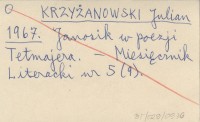 KRZYŻANOWSKI Julian
1967. Janosik w poezji
Tetmajera. — Miesięcznik
Literacki nr 5 (9).